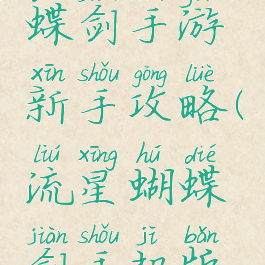 蝶剑手游
xīn shǒu gōng lüè
新手攻略(
liú xīng hú dié
流星蝴蝶
jiàn shǒu jī bǎn
剑手机版